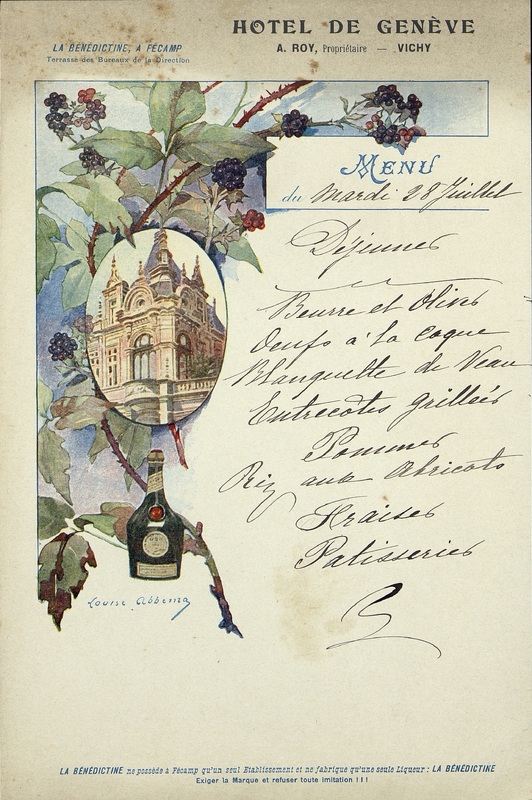 HOTEL DE GENÈVE
A. ROY, Propriétaire — VICHY
LA BÉNÉDICTINE, A FÉCAMP
Terrasse des Bureaux de la Direction
MENU
du Mardi 28 Juillet
Déjeuner
Beurre et Olives
Oeufs à la Coque
Blanquette de Veau
Entrecotes grillées
Pommes
Riz aux Abricots
Fraises
Patisseries
Louise Abbema
LA BÉNÉDICTINE ne possède à Fécamp qu'un seul Etablissement et ne fabrique qu'une seule Liqueur : LA BÉNÉDICTINE
Exiger la Marque et refuser toute imitation !!!